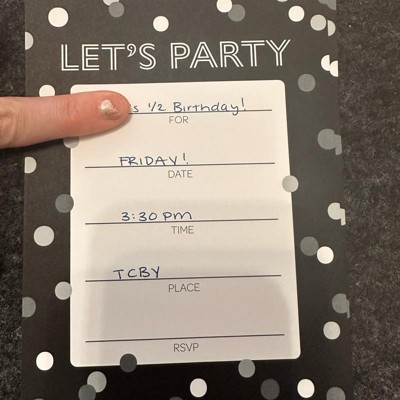 LET'S PARTY
s 1/2 Birthday!
FOR
FRIDAY!
DATE
3:30 pm
TIME
TCBY
PLACE
RSVP